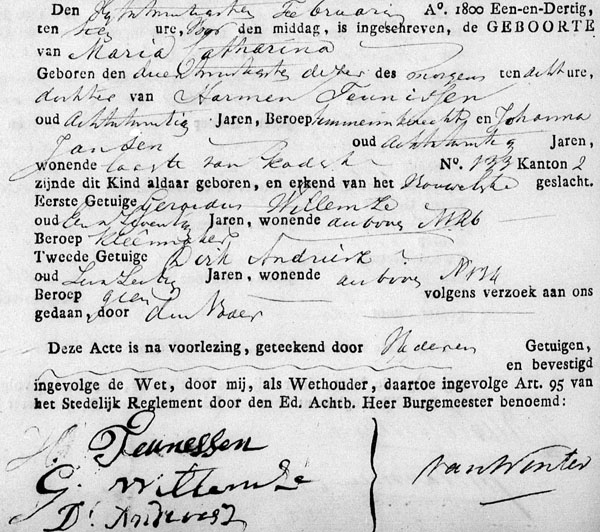 Den Agtentwintigsten Februarij A°. 1800 Een-en-Dertig,
ten ure, Voor den middag, is ingeschreven, de GEBOORTE
van Maria Catharina
Geboren den dezer des morgens ten acht ure,
dochter van Harmen Teunissen
oud Achtentwintig Jaren, Beroep timmermansknecht en Johanna
Jansen oud Achtentwintig Jaren,
wonende N°. 133 Kanton 2
zijnde dit Kind aldaar geboren, en erkend van het Vrouwelijke geslacht.
Eerste Getuige Gerardus Willemze
oud Jaren, wonende als boven N 126
Beroep Kleermaker
Tweede Getuige Dirk Andriesz
oud Jaren, wonende als boven N 134
Beroep geen volgens verzoek aan ons
gedaan, door den Vader
Deze Acte is na voorlezing, geteekend door Vader en Getuigen,
en bevestigd
ingevolge de Wet, door mij, als Wethouder, daartoe ingevolge Art. 95 van
het Stedelijk Reglement door den Ed. Achtb. Heer Burgemeester benoemd:
H. Teunessen
G. Willemze van Winter
D. Andriesz